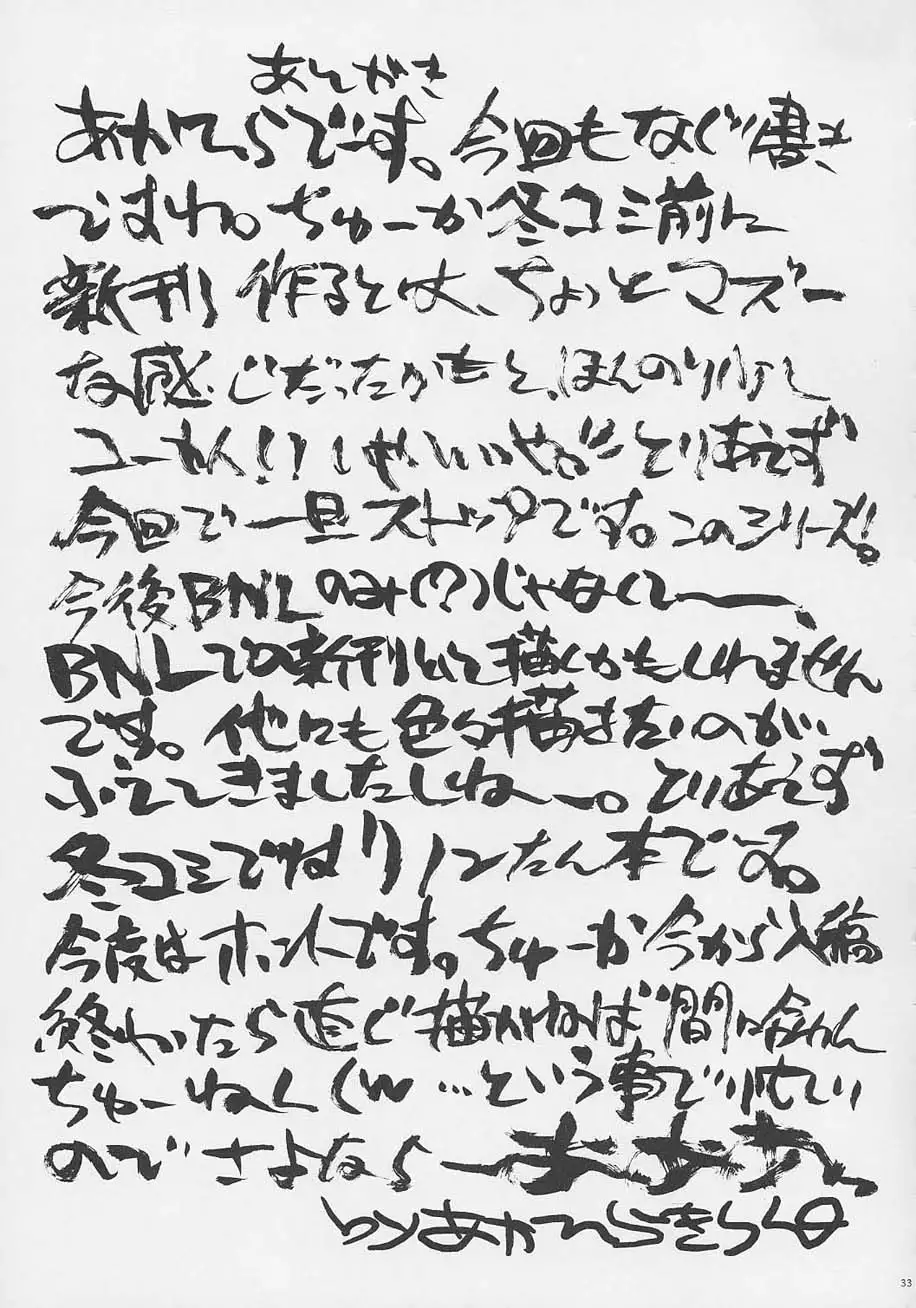 あとがき
あかてらでーす。今回もなぐり書き
ですね。ちゅーか冬コミ前に
新刊作るとは、ちょっとマズー
な感じだったかもと、ほんのり
とりあえず
今回で一旦ストップです。このシリーズ!。
今後BNLのみ(?)じゃなくてー、
BNLでの新刊として描くかもしれません
です。他にも色々描きたいのが
ふえてきましたしねー。とりあえず
冬コミではリノンたん本でする。
今度はホントです。ちゅーか今から入稿
終わったら直ぐ描かねば間に合わん
ちゅーねん(w …という事で忙しい
のでさよなら